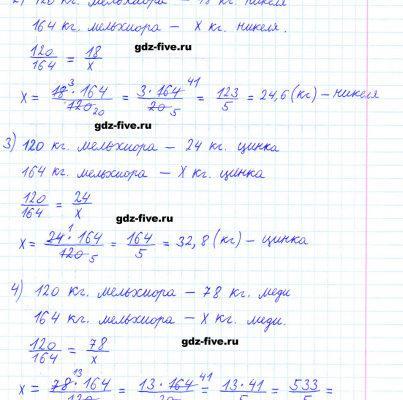 2) 120 кг. мельхиора – 18 кг. никеля
164 кг. мельхиора – x кг. никеля.
gdz-five.ru
120/164 = 18/x
x = 18³ · 164 / 120 20 = 3 · 164 41 / 20 5 = 123/5 = 24,6 (кг) – никеля
gdz-five.ru
3) 120 кг. мельхиора – 24 кг. цинка
164 кг. мельхиора – x кг. цинка
120/164 = 24/x
gdz-five.ru
x = 24 1 · 164 / 120 5 = 164/5 = 32,8 (кг) – цинка
4) 120 кг. мельхиора – 78 кг. меди
164 кг. мельхиора – x кг. меди.
120/164 = 78/x
gdz-five.ru
x = 78 13 · 164 / 120 = 13 · 164 41 / 20 = 13 · 41 / 5 = 533 / 5 =